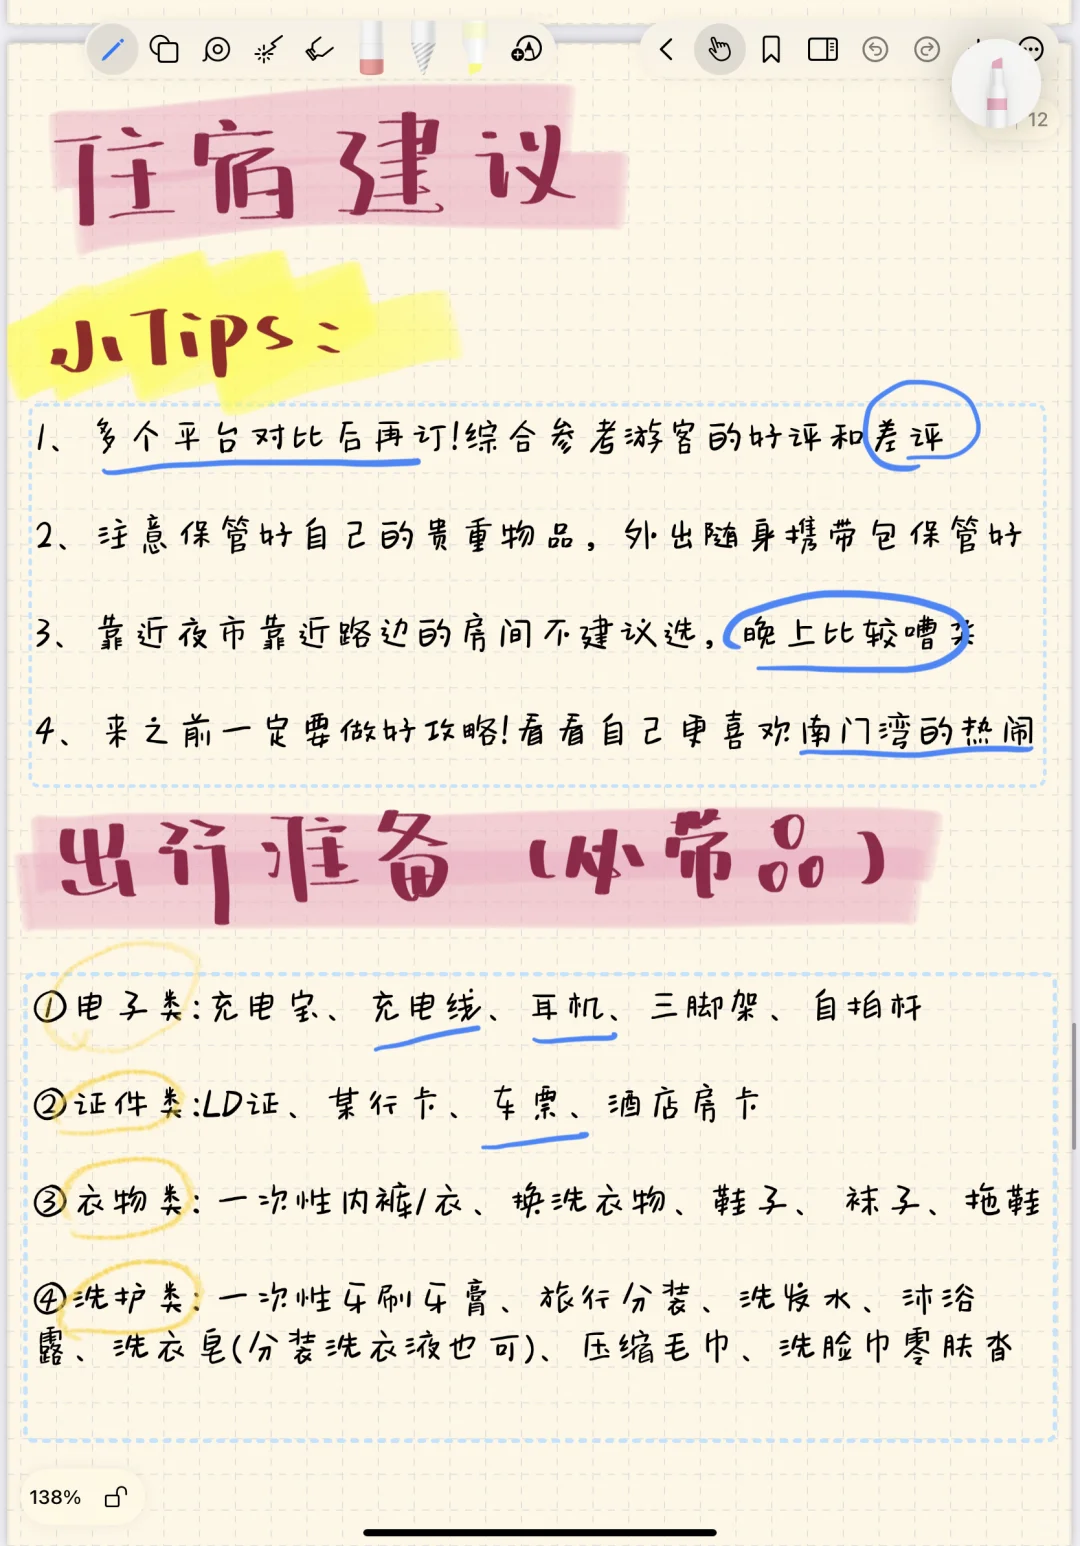 12
住宿建议
小Tips：
1、多个平台对比后再订!综合参考游客的好评和差评
2、注意保管好自己的贵重物品，外出随身携带包保管好
3、靠近夜市靠近路边的房间不建议选，晚上比较嘈
4、来之前一定要做好攻略!看看自己更喜欢南门湾的热闹
出行准备（必带品）
①电子类:充电宝、充电线、耳机、三脚架、自拍杆
②证件类:LD证、某行卡、车票、酒店房卡
③衣物类:一次性内裤/衣、换洗衣物、鞋子、袜子、拖鞋
④洗护类:一次性牙刷牙膏、旅行分装、洗发水、沐浴
露、洗衣皂(分装洗衣液也可)、压缩毛巾、洗脸巾零肤
138%